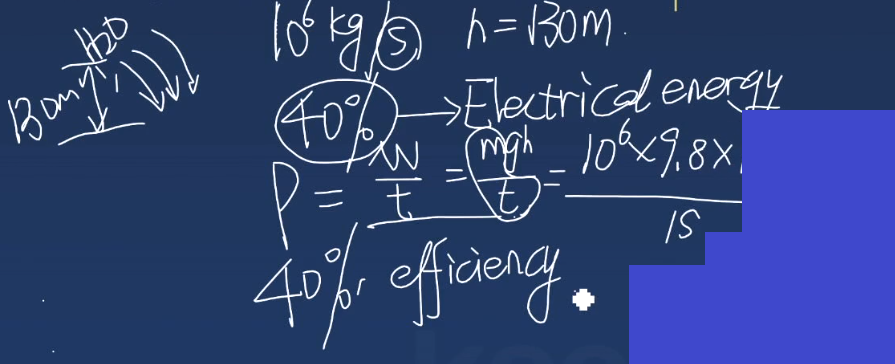 10⁶ kg/s h=130m.
H2O
130m
40% → Electrical energy
P = W/t = mgh/t = 10⁶×9.8×
1S
40%, efficiency